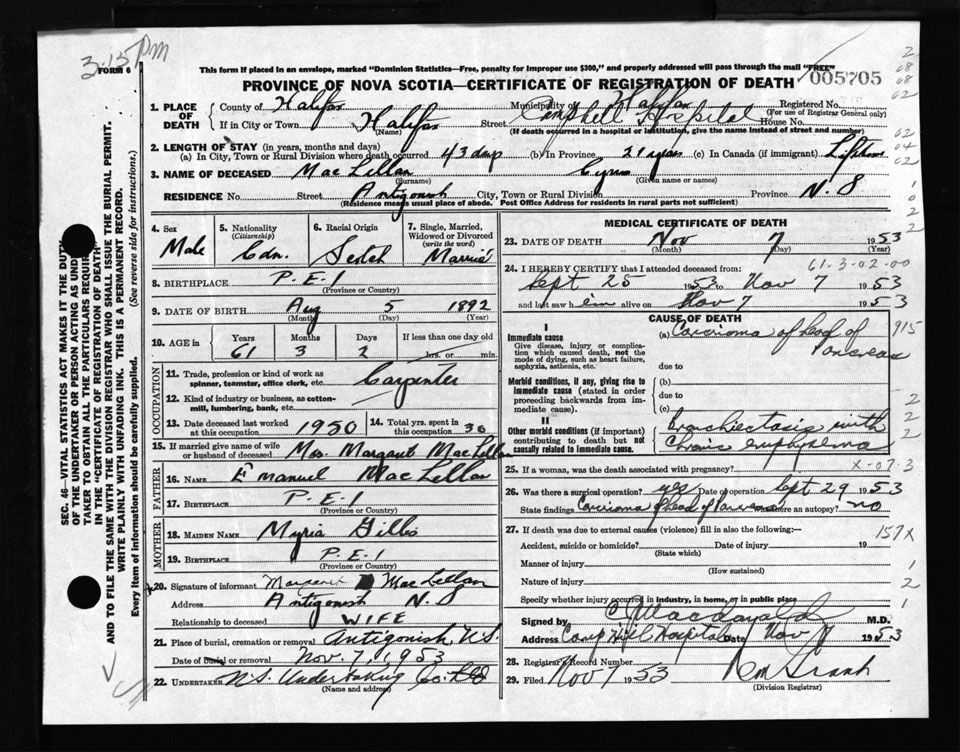 3.15 PM
FORM 6
This form if placed in an envelope, marked "Dominion Statistics—Free, penalty for improper use $300," and properly addressed will pass through the mail "FREE"
005705
PROVINCE OF NOVA SCOTIA—CERTIFICATE OF REGISTRATION OF DEATH
1. PLACE OF DEATH
County of Halifax Municipality of Halifax Registered No.
(For use of Registrar General only)
If in City or Town Halifax Street Camp Hill Hospital House No.
(Name) (If death occurred in a hospital or institution, give the name instead of street and number)
2. LENGTH OF STAY (in years, months and days)
(a) In City, Town or Rural Division where death occurred 43 days (b) In Province 21 years (c) In Canada (if immigrant) Lifetime
3. NAME OF DECEASED MacLellan Cyrus
(Surname) (Given name or names)
RESIDENCE No. Street Antigonish City, Town or Rural Division Province N.S
(Residence means usual place of abode. Post Office Address for residents in rural parts not sufficient)
4. Sex Male
5. Nationality (Citizenship) Cdn.
6. Racial Origin Scotch
7. Single, Married, Widowed or Divorced (write the word) Married
8. BIRTHPLACE P.E.I
(Province or Country)
9. DATE OF BIRTH Aug 5 1892
(Month) (Day) (Year)
10. AGE in Years Months Days If less than one day old
61 3 2 hrs. or min.
OCCUPATION
11. Trade, profession or kind of work as spinner, teamster, office clerk, etc. Carpenter
12. Kind of industry or business, as cotton-mill, lumbering, bank, etc.
13. Date deceased last worked at this occupation 1950
14. Total yrs. spent in this occupation 30
15. If married give name of wife or husband of deceased Mrs. Margaret MacLellan
FATHER
16. NAME Emanuel MacLellan
17. BIRTHPLACE P.E.I
(Province or Country)
MOTHER
18. MAIDEN NAME Myria Gillis
19. BIRTHPLACE P.E.I
(Province or Country)
20. Signature of informant Margaret MacLellan
Address Antigonish N.S
Relationship to deceased WIFE
21. Place of burial, cremation or removal Antigonish N.S.
Date of burial or removal Nov. 7, 1953
22. UNDERTAKER N.S. Undertaking Co. Ltd
(Name and address)
MEDICAL CERTIFICATE OF DEATH
23. DATE OF DEATH Nov 7 1953
(Month) (Day) (Year)
61-3-02-00
24. I HEREBY CERTIFY that I attended deceased from:
Sept 25 1953 to Nov 7 1953
and last saw him alive on Nov 7 1953
CAUSE OF DEATH
I
Immediate cause
Give disease, injury or complication which caused death, not the mode of dying, such as heart failure, asphyxia, asthenia, etc.
(a) Carcinoma of head of pancreas
915
due to
Morbid conditions, if any, giving rise to immediate cause (stated in order proceeding backwards from immediate cause).
(b)
due to
(c)
II
Other morbid conditions (if important) contributing to death but not causally related to immediate cause.
Bronchiectasis with
Chronic emphysema
25. If a woman, was the death associated with pregnancy?
X-07-3
26. Was there a surgical operation? yes Date of operation Sept 29 1953
State findings Carcinoma of head of Pancreas Was there an autopsy? no
27. If death was due to external causes (violence) fill in also the following:—
157X
Accident, suicide or homicide? Date of injury 19
(State which)
Manner of injury
(How sustained)
Nature of injury
Specify whether injury occurred in industry, in home, or in public place
Signed by M.D.
Address Camp Hill Hospital Date Nov 7 1953
28. Registrar's Record Number
29. Filed Nov 7 1953
(Division Registrar)
SEC. 46—VITAL STATISTICS ACT MAKES IT THE DUTY
OF THE UNDERTAKER OR PERSON ACTING AS UND
TAKER TO OBTAIN ALL THE PARTICULARS REQUIR
IN THE "CERTIFICATE OF REGISTRATION OF DEATH"
AND TO FILE THE SAME WITH THE DIVISION REGISTRAR WHO SHALL ISSUE THE BURIAL PERMIT.
WRITE PLAINLY WITH UNFADING INK. THIS IS A PERMANENT RECORD.
Every item of information should be carefully supplied. (See reverse side for instructions.)